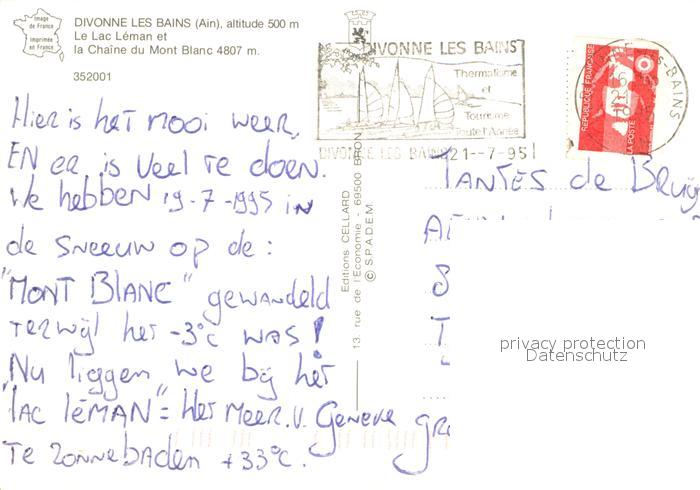 Image
de France
Imprimée
en France
DIVONNE LES BAINS (Ain), altitude 500 m
Le Lac Léman et
la Chaîne du Mont Blanc 4807 m.
352001
DIVONNE LES BAINS
Thermalisme
et
Tourisme
toute l'Année
DIVONNE LES BAINS 21--7-95
RÉPUBLIQUE FRANÇAISE
LA POSTE
BAINS
Hier is het mooi weer,
EN er is veel te doen.
We hebben 19-7-1995 in
de sneeuw op de:
"MONT BLANC" gewandeld
terwijl het -3°C was!
Nu liggen we bij het
"lac léman"= Het Meer.v. Geneve
te zonnebaden +33°C.
Editions CELLARD
13, rue de l'Economie - 69500 BRON
© SPADEM
TANTES de Bruy
privacy protection
Datenschutz